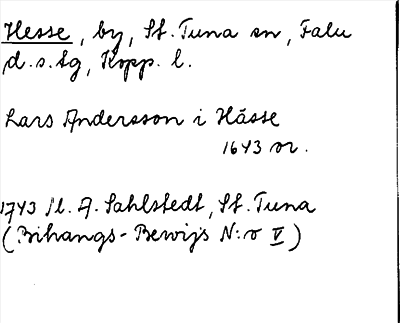 Hesse, by, St. Tuna sn, Falu
d.s.tg, Kopp. l.
Lars Andersson i Hässe
1643 or.
1743 M. A. Sahlstedt, St. Tuna
(Bihangs-Bewijs N:o V)